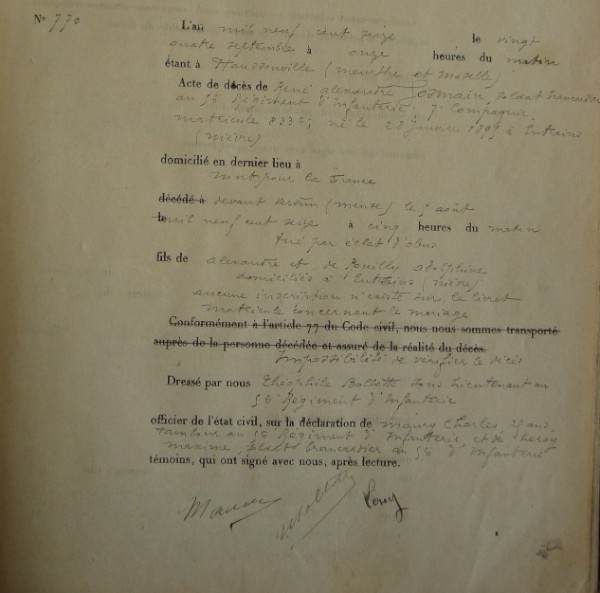 N° 770
L'an mil neuf cent seize le vingt
quatre septembre à onze heures du matin
étant à Haussonville (meurthe et moselle)
Acte de décès de René alexandre soldat brancardier
au Régiment d'Infanterie 7e Compagnie,
matricule né le janvier à Entrains
(nièvre)
domicilié en dernier lieu à
mort pour la France
décédé à devant verdun (meuse) le août
le mil neuf cent seize à cinq heures du matin
tué par éclat d'obus
fils de alexandre et de Rouilly adolphine
domiciliés à Entrains (nièvre)
aucune inscription n'existe sur le livret
matricule concernant le mariage
Conformément à l'article 77 du Code civil, nous nous sommes transporté
auprès de la personne décédée et assuré de la réalité du décès.
Impossibilité de vérifier le décès
Dressé par nous Théophile sous lieutenant au
Régiment d'Infanterie
officier de l'état civil, sur la déclaration de Charles, ans,
tambour au Régiment d'Infanterie, et de Leroy
maxime brancardier au d'Infanterie
témoins, qui ont signé avec nous, après lecture.
Leroy